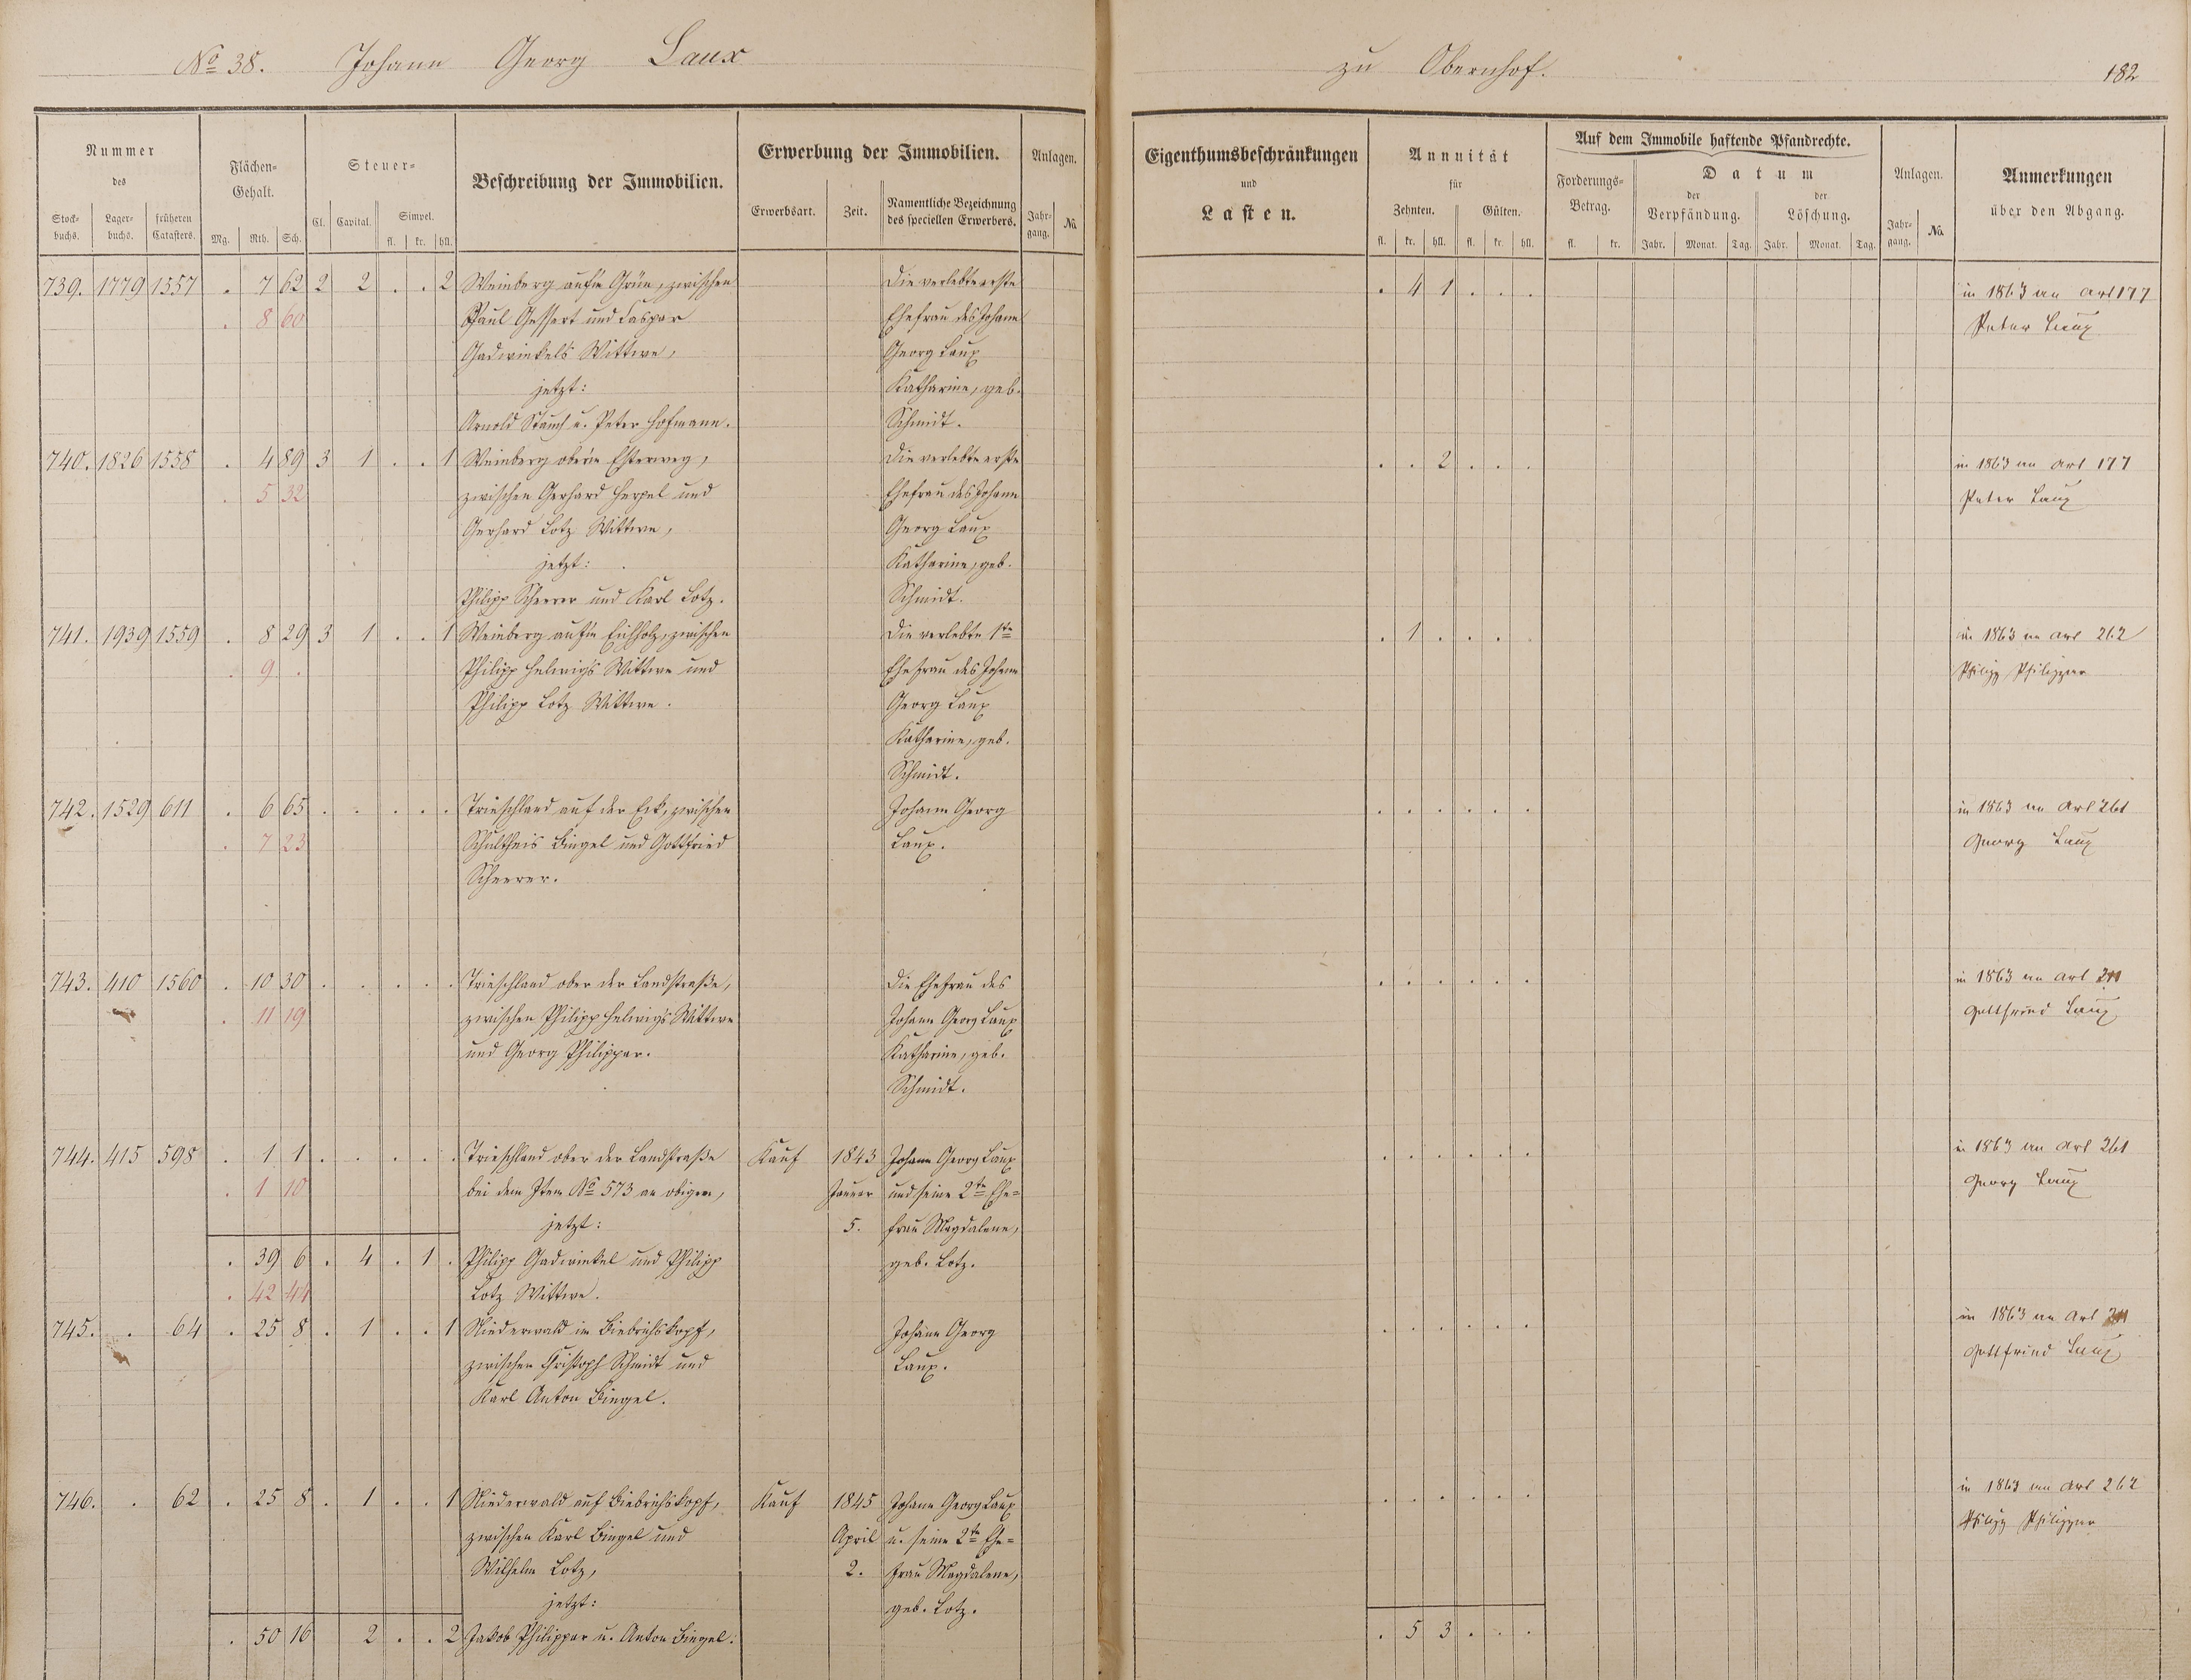 No 38. Johann Georg Laux
zu Obernhof. 182
Nummer des
Stock-buchs. Lager-buchs. früheren Catasters.
Flächen-Gehalt.
Mg. Rth. Sch.
Steuer-
Cl. Capital. Simpel.
fl. kr. hll.
Beschreibung der Immobilien.
Erwerbung der Immobilien.
Erwerbsart. Zeit. Namentliche Bezeichnung des speciellen Erwerbers.
Anlagen.
Jahr-gang. No.
Eigenthumsbeschränkungen
und
Lasten.
Annuität
für
Zehnten. Gülten.
fl. kr. hll. fl. kr. hll.
Auf dem Immobile haftende Pfandrechte.
Forderungs-Betrag.
fl. kr.
Datum
der Verpfändung. der Löschung.
Jahr. Monat. Tag. Jahr. Monat. Tag.
Anlagen.
Jahr-gang. No.
Anmerkungen
über den Abgang.
739. 1779 1557 . 7 62 2 2 . . 2 Weinberg auf'm Grün, zwischen Die verlebte erste . 4 1 . . . in 1863 an Art 177
. 8 60 Paul Gessert und Caspar Ehefrau des Johann Peter Laux
Gadwinkels Wittwe, Georg Laux
jetzt: Katharine, geb.
Arnold Stauch u. Peter Hofmann. Schmidt.
740. 1826 1558 . 4 89 3 1 . . 1 Weinberg ober'm Esterweg, Die verlebte erste . . 2 . . . in 1863 an Art 177
. 5 32 zwischen Gerhard Herpel und Ehefrau des Johann Peter Laux
Gerhard Lotz Wittwe, Georg Laux
jetzt: Katharine, geb.
Philipp Scheerer und Karl Lotz. Schmidt.
741. 1939 1559 . 8 29 3 1 . . 1 Weinberg auf'm Eichholz, zwischen Die verlebte 1te . 1 . . . . in 1863 an Art 262
. 9 . Philipp Helwigs Wittwe und Ehefrau des Johann Philipp Philippar
Philipp Lotz Wittwe. Georg Laux
Katharine, geb.
Schmidt.
742. 1529 611 . 6 65 . . . . . Trieschland auf der Eck, zwischen Johann Georg . . . . . . in 1863 an Art 261
. 7 23 Schultheis Bingel und Gottfried Laux. Georg Laux
Scheerer.
743. 410 1560 . 10 30 . . . . . Trieschland ober der Landstraße, Die Ehefrau des . . . . . . in 1863 an Art
. 11 19 zwischen Philipp Helwigs Wittwe Johann Georg Laux Gottfried Laux
und Georg Philippar. Katharine, geb.
Schmidt.
744. 415 598 . 1 1 . . . . . Trieschland ober der Landstraße Kauf 1843 Johann Georg Laux . . . . . . in 1863 an Art 261
. 1 10 bei dem Item No 573 an obigem, Januar und seine 2te Ehe= Georg Laux
jetzt: 5. frau Magdalene,
. 39 6 . 4 . 1 . Philipp Gadwinkel und Philipp geb. Lotz.
. 42 44 Lotz Wittwe.
745. . 64 . 25 8 . 1 . . 1 Niederwald im Biebrichskopf, Johann Georg . . . . . . in 1863 an Art
zwischen Christoph Schmidt und Laux. Gottfried Laux
Karl Anton Bingel.
746. . 62 . 25 8 . 1 . . 1 Niederwald auf Biebrichskopf, Kauf 1845 Johann Georg Laux . . . . . . in 1863 an Art 262
zwischen Karl Bingel und April u. seine 2te Ehe= Philipp Philippar
Wilhelm Lotz, 2. frau Magdalene,
jetzt: geb. Lotz.
. 50 16 2 . . 2 Jakob Philippar u. Anton Bingel. . 5 3 . . .